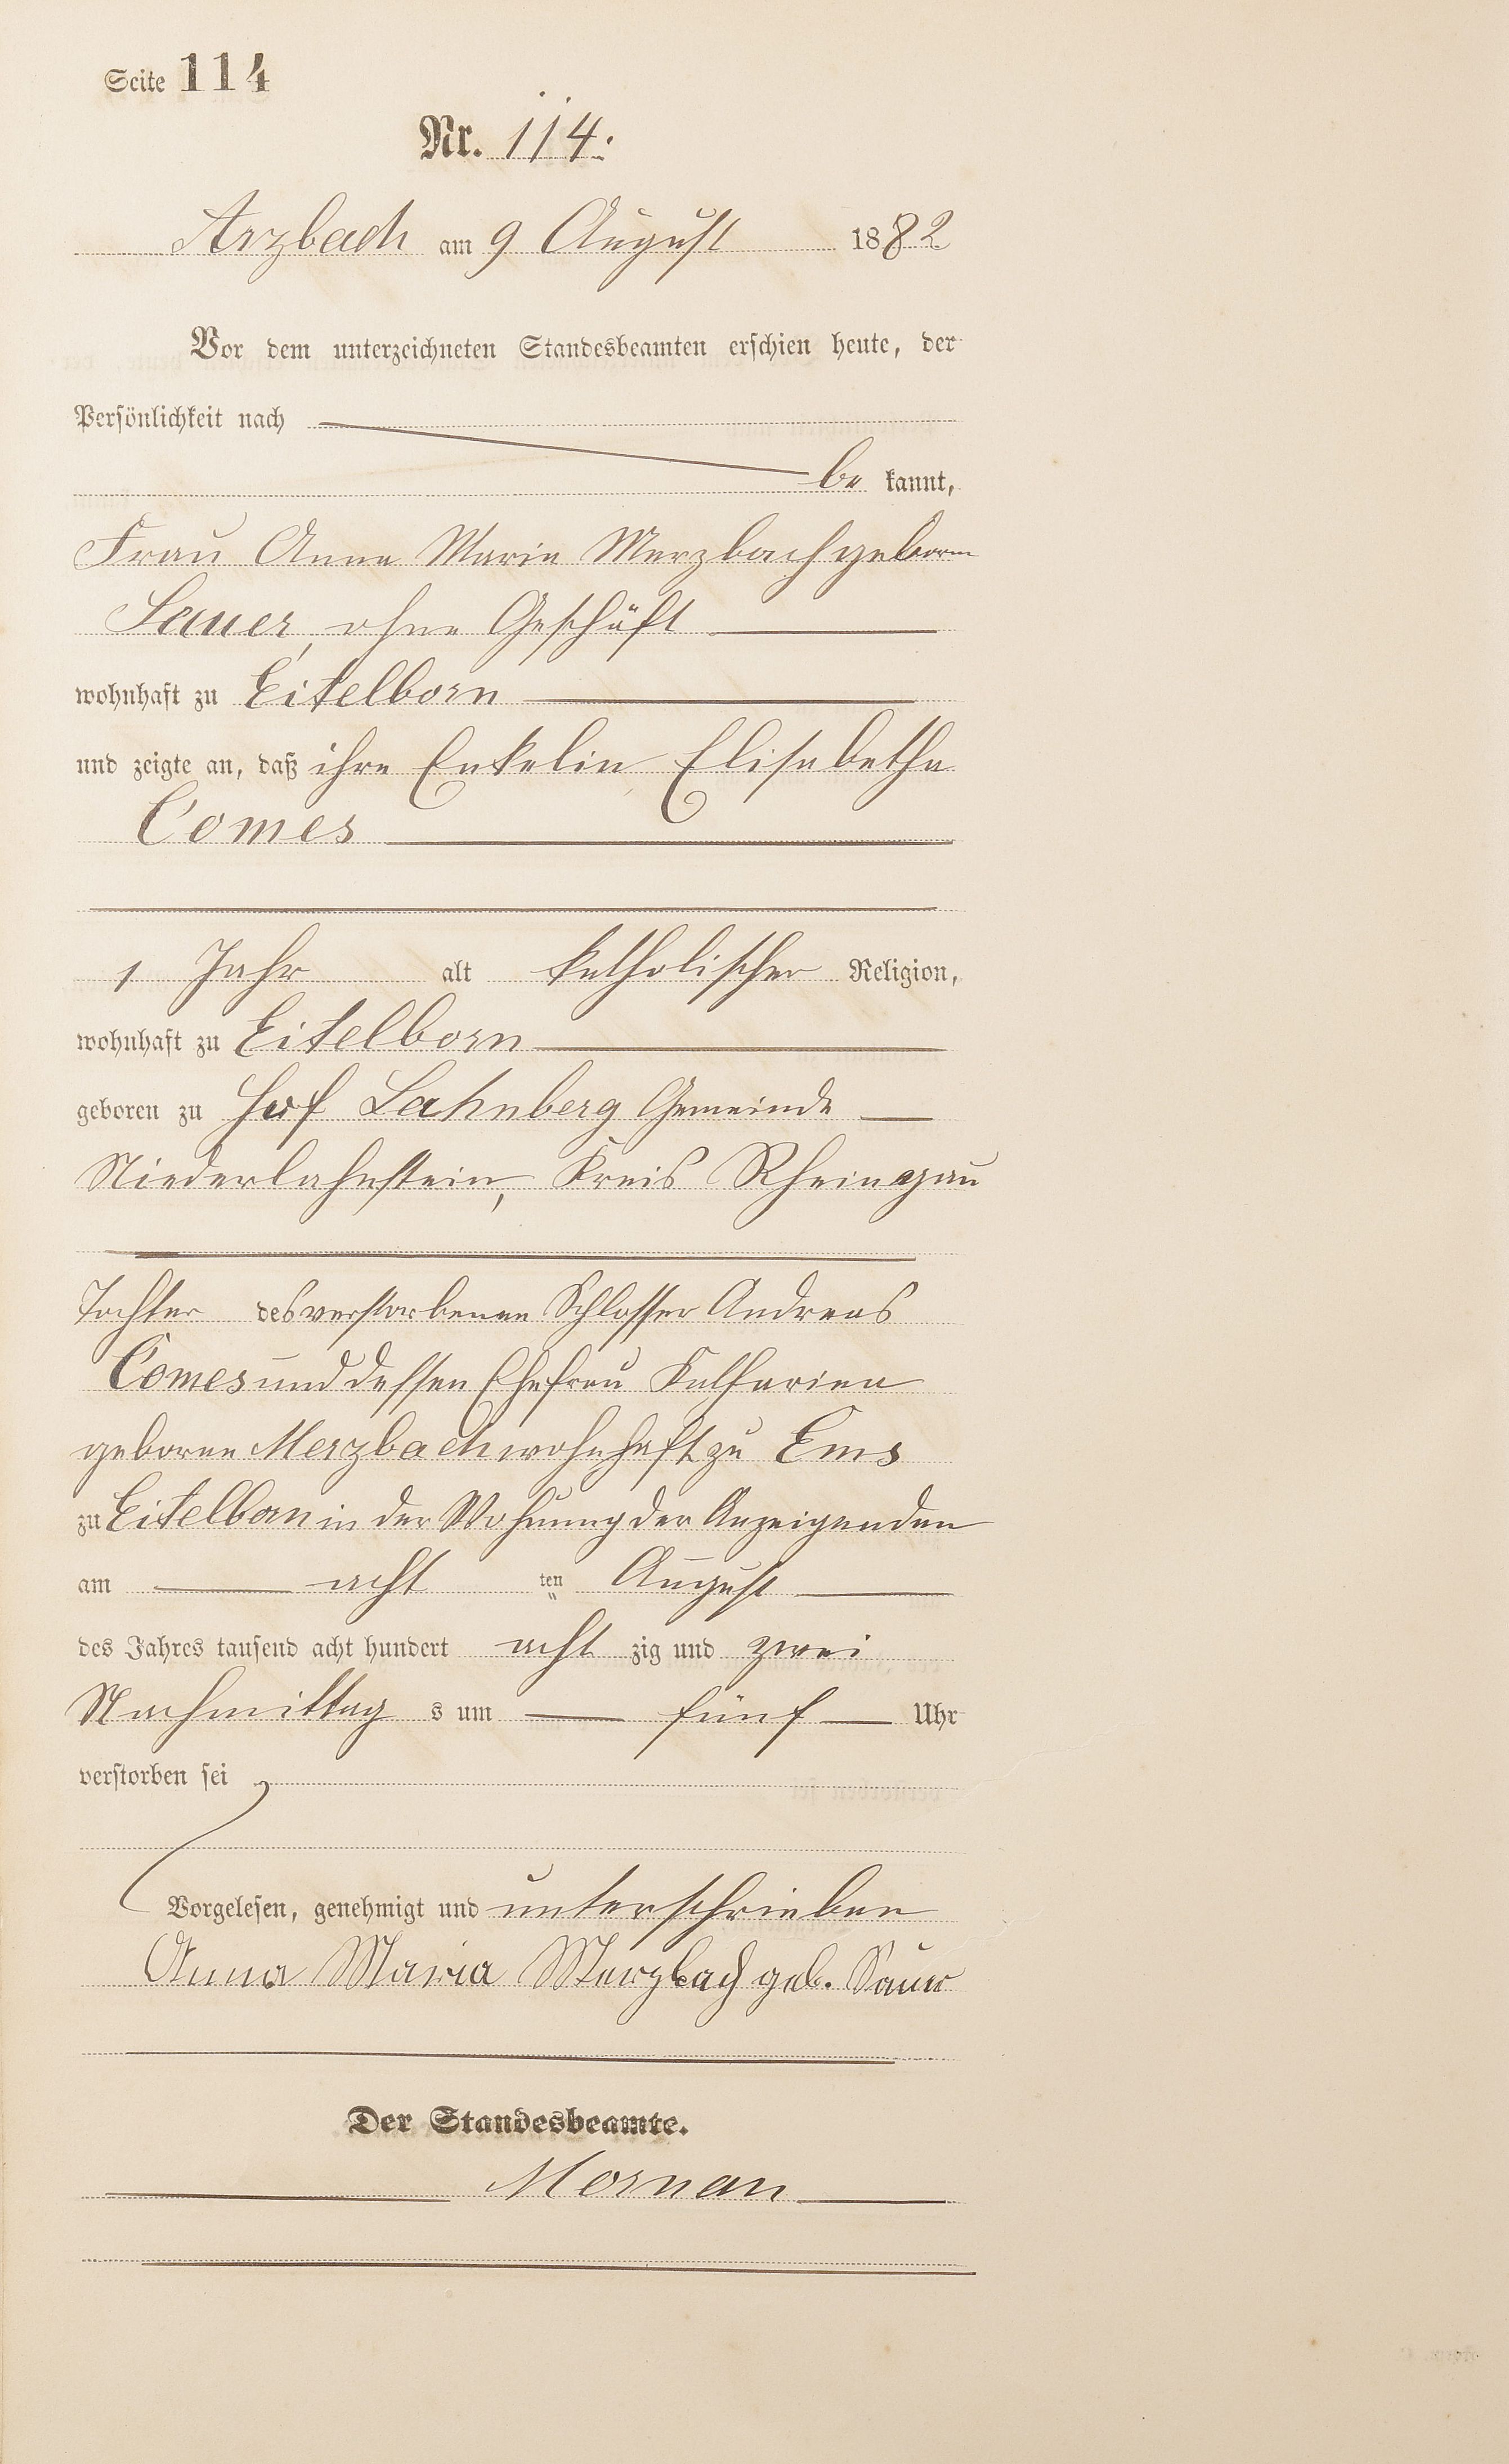 Seite 114
Nr. 114.
Arzbach am 9 August 1882
Vor dem unterzeichneten Standesbeamten erschien heute, der
Persönlichkeit nach
be kannt,
Frau Anna Maria Merzbach geboren
Sauer, ohne Geschäft
wohnhaft zu Eitelborn
und zeigte an, daß ihre Enkelin Elisabetha
Comes
1 Jahr alt katholischer Religion,
wohnhaft zu Eitelborn
geboren zu Hof Lahnberg Gemeinde
Niederlahnstein, Kreis Rheingau
Tochter des verstorbenen Schlosser Andreas
Comes und dessen Ehefrau Katharina
geborne Merzbach wohnhaft zu Ems
zu Eitelborn in der Wohnung der Anzeigenden
am acht ten August
des Jahres tausend acht hundert acht zig und zwei
Nachmittag s um fünf Uhr
verstorben sei
Vorgelesen, genehmigt und unterschrieben
Anna Maria Merzbach geb. Sauer
Der Standesbeamte.